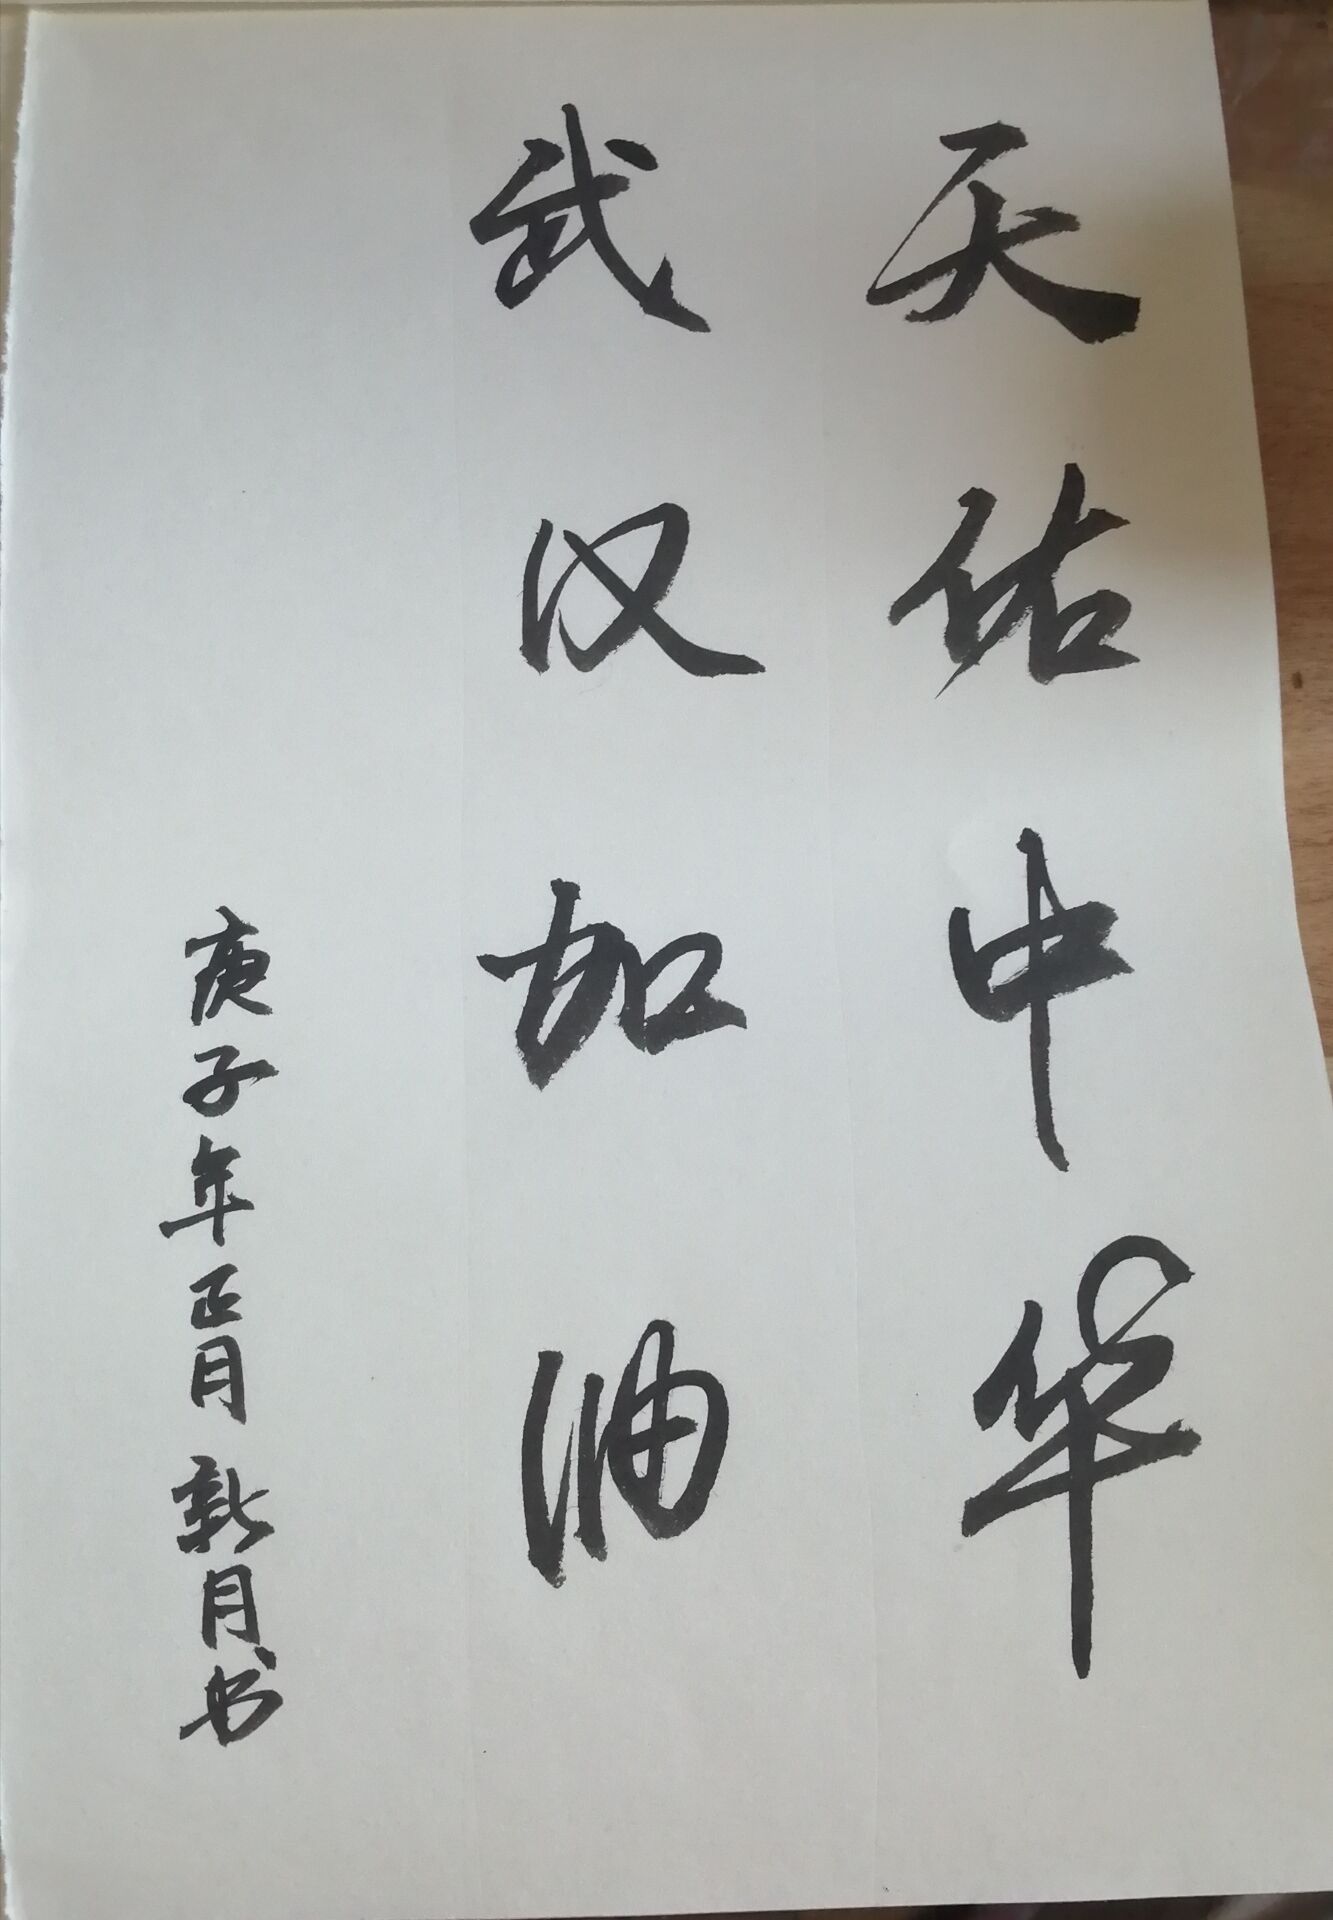 天佑中华
武汉加油
庚子年正月新月书